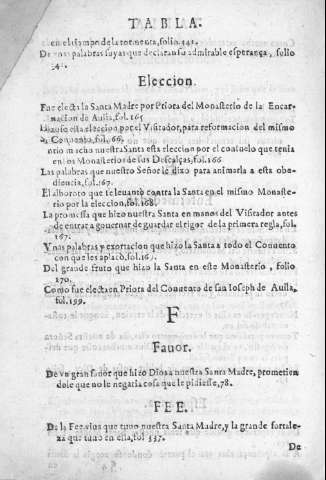 TABLA.
en el tiempo de la tormenta, folio 342.
De unas palabras suyas que declaran su admirable esperança, folio
Eleccion.
Fue electa la Santa Madre por Priora del Monasterio de la Encar-
nacion de Auila, fol. 165
Hizose esta eleccion por el Visitador, para reformacion del mismo
Conuento, fol. 166.
mucho nuestra Santa esta eleccion por el consuelo que tenia
en los Monasterios de sus Descalças, fol. 166
Las palabras que nuestro Señor le dixo para animarla a esta obe-
diencia, fol. 167.
El alboroto que se leuantò contra la Santa en el mismo Monaste-
rio por la eleccion, fol. 168.
La promessa que hizo nuestra Santa en manos del Visitador antes
de entrar a gouernar de guardar el rigor de la primera regla, fol.
167.
Vnas palabras y exortacion que hizo la Santa a todo el Conuento
con que les aplacò, fol. 169.
Del grande fruto que hizo la Santa en este Monasterio, folio
170.
Como fue electa en Priora del Conuento de san Ioseph de Auila,
fol. 199.
F
Fauor.
De vn gran fauor que hizo Dios a nuestra Santa Madre, prometien
dole que no le negaria cosa que le pidiesse, 78.
FEE.
De la Fee viua que tuuo nuestra Santa Madre, y la grande fortale-
za que tuuo en ella, fol 337.
De